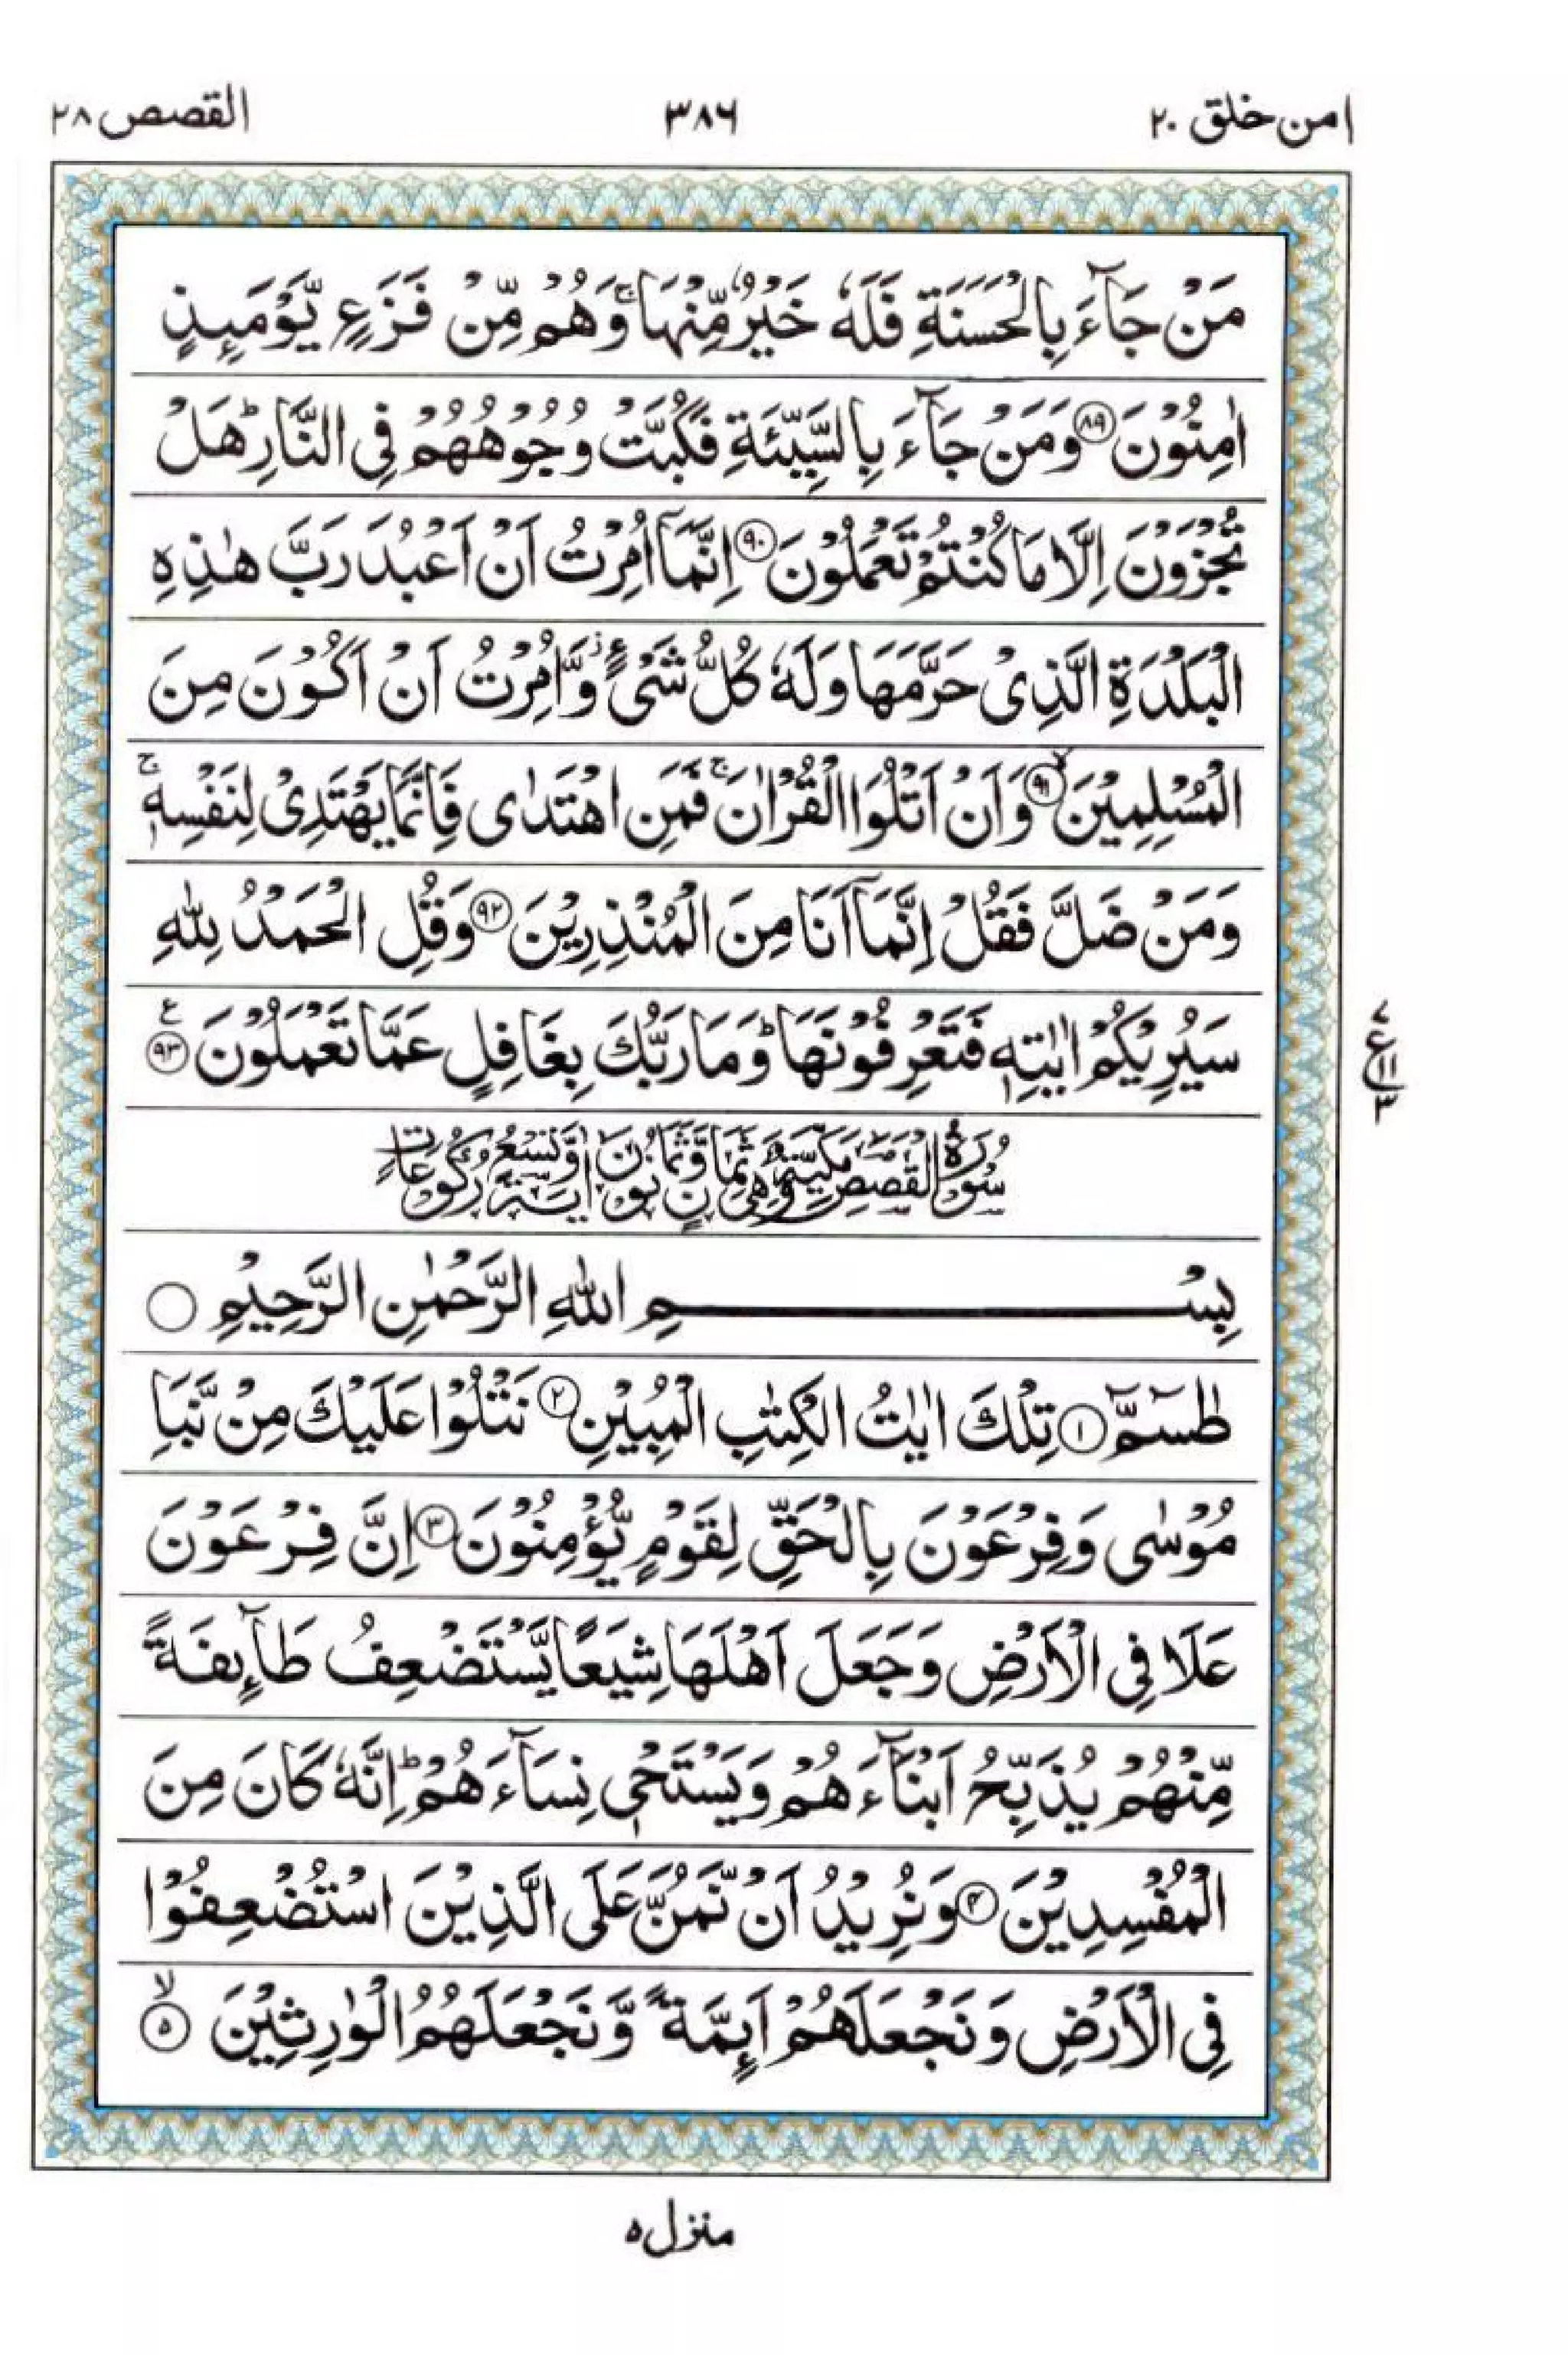 امن خلق ٢٠
٣٨٦
القصص ٢٨
مَنْ جَآءَ بِالْحَسَنَةِ فَلَهٗ خَيْرٌ مِّنْهَا ۚ وَهُمْ مِّنْ فَزَعٍ يَّوْمَىِٕذٍ
اٰمِنُوْنَ ﴿٨٩﴾ وَمَنْ جَآءَ بِالسَّيِّئَةِ فَكُبَّتْ وُجُوْهُهُمْ فِى النَّارِ ؕ هَلْ
تُجْزَوْنَ اِلَّا مَا كُنْتُمْ تَعْمَلُوْنَ ﴿٩٠﴾ اِنَّمَآ اُمِرْتُ اَنْ اَعْبُدَ رَبَّ هٰذِهِ
الْبَلْدَةِ الَّذِىْ حَرَّمَهَا وَلَهٗ كُلُّ شَىْءٍ ؗ وَّاُمِرْتُ اَنْ اَكُوْنَ مِنَ
الْمُسْلِمِيْنَ ﴿٩١﴾ ۙ وَاَنْ اَتْلُوَا الْقُرْاٰنَ ۚ فَمَنِ اهْتَدٰى فَاِنَّمَا يَهْتَدِىْ لِنَفْسِهٖ ۚ
وَمَنْ ضَلَّ فَقُلْ اِنَّمَآ اَنَا مِنَ الْمُنْذِرِيْنَ ﴿٩٢﴾ وَقُلِ الْحَمْدُ لِلّٰهِ
سَيُرِيْكُمْ اٰيٰتِهٖ فَتَعْرِفُوْنَهَا ؕ وَمَا رَبُّكَ بِغَافِلٍ عَمَّا تَعْمَلُوْنَ ﴿٩٣﴾ ع
٧
ع
١١
٣
سُوْرَةُ الْقَصَصِ مَكِّيَّةٌ وَّهِىَ ثَمَانٍ وَّثَمَانُوْنَ اٰيَةً وَّتِسْعُ رُكُوْعَاتٍ
بِسْمِ اللّٰهِ الرَّحْمٰنِ الرَّحِيْمِ ○
طٰسٓمّٓ ﴿١﴾ تِلْكَ اٰيٰتُ الْكِتٰبِ الْمُبِيْنِ ﴿٢﴾ نَتْلُوْا عَلَيْكَ مِنْ نَّبَاِ
مُوْسٰى وَفِرْعَوْنَ بِالْحَقِّ لِقَوْمٍ يُّؤْمِنُوْنَ ﴿٣﴾ اِنَّ فِرْعَوْنَ
عَلَا فِى الْاَرْضِ وَجَعَلَ اَهْلَهَا شِيَعًا يَّسْتَضْعِفُ طَآىِٕفَةً
مِّنْهُمْ يُذَبِّحُ اَبْنَآءَهُمْ وَيَسْتَحْىٖ نِسَآءَهُمْ ؕ اِنَّهٗ كَانَ مِنَ
الْمُفْسِدِيْنَ ﴿٤﴾ وَنُرِيْدُ اَنْ نَّمُنَّ عَلَى الَّذِيْنَ اسْتُضْعِفُوْا
فِى الْاَرْضِ وَنَجْعَلَهُمْ اَىِٕمَّةً وَّنَجْعَلَهُمُ الْوٰرِثِيْنَ ﴿٥﴾ ۙ
منزل ٥